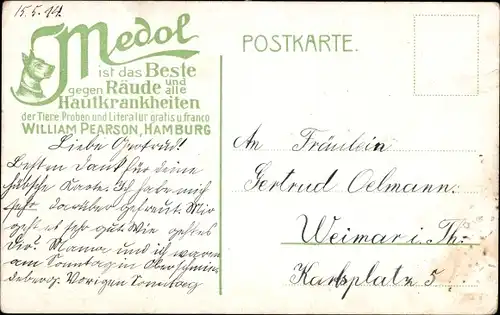 15.5.44
Medol
ist das Beste
gegen Räude und alle
Hautkrankheiten
der Tiere. Proben und Literatur gratis u. franco
WILLIAM PEARSON, HAMBURG
POSTKARTE.
Liebe Gertrud!
Besten Dank für deine
hübsche Karte. Ich habe mich
sehr darüber gefreut. Mir
geht es sehr gut. Wie geht es
Dir? Mama und ich waren
am Sonntag in Ober
Vorigen Sonntag
An Fräulein
Gertrud Oelmann.
Weimar i. Th.
Karlsplatz 5